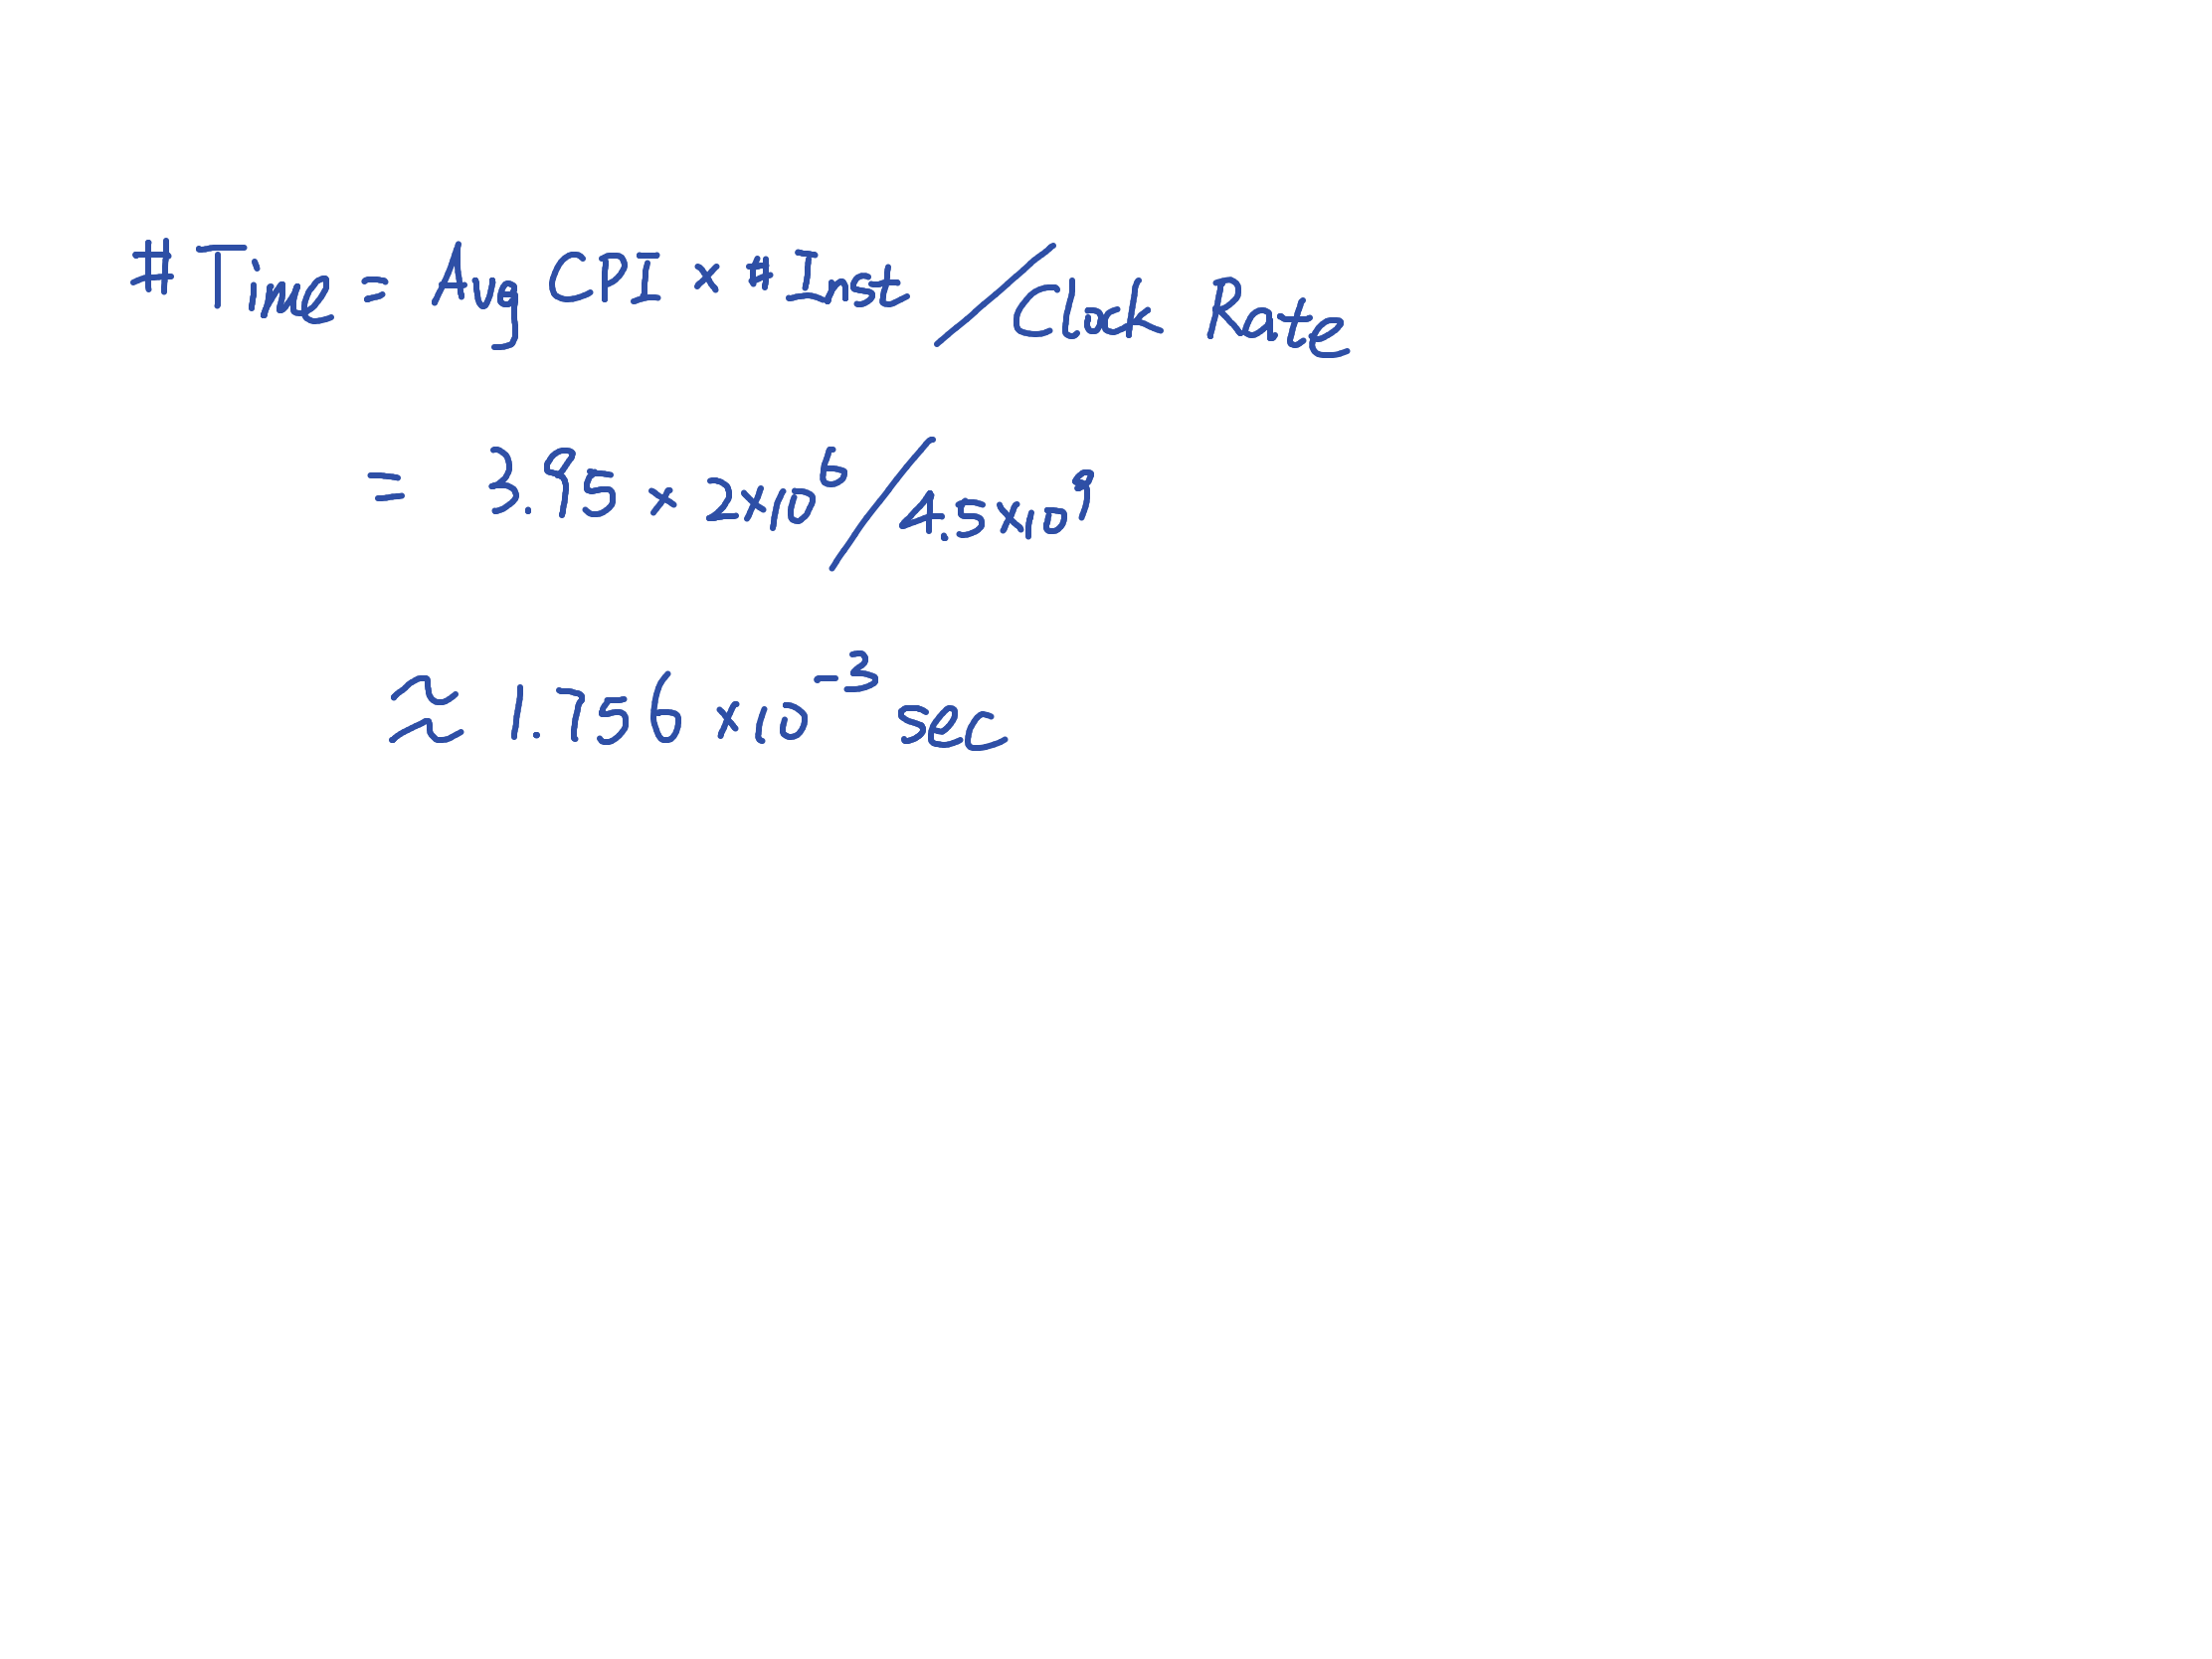 # Time = Avg CPI × # Inst / Clock Rate
= 3.95 × 2×10⁶ / 4.5×10⁹
≈ 1.756 ×10⁻³ sec